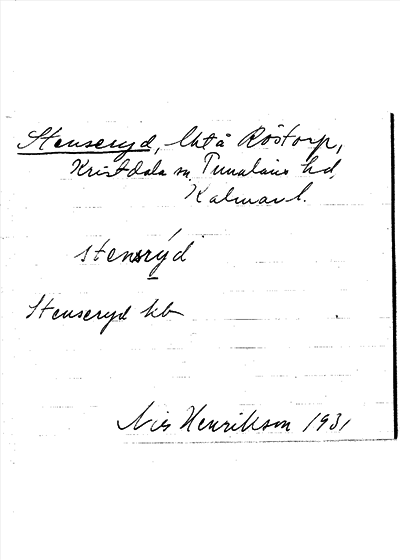 Stenseryd, lht å Röstorp,
Kristdala sn, Tunaläns hd,
Kalmar l.
stensrýd
Stenseryd kb
Nils Henrikson 1931